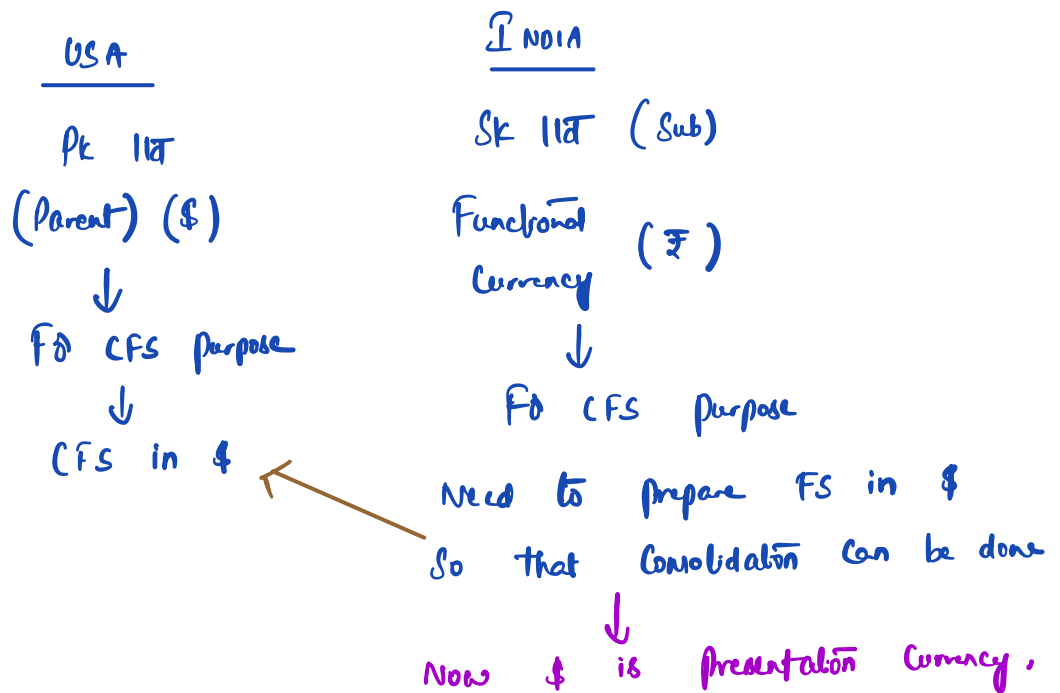 USA
Pk ltd
(Parent) ($)
For CFS purpose
CFS in $
INDIA
Sk ltd (Sub)
Functional
Currency (₹)
For CFS purpose
Need to prepare FS in $
So that Consolidation can be done
Now $ is presentation Currency.